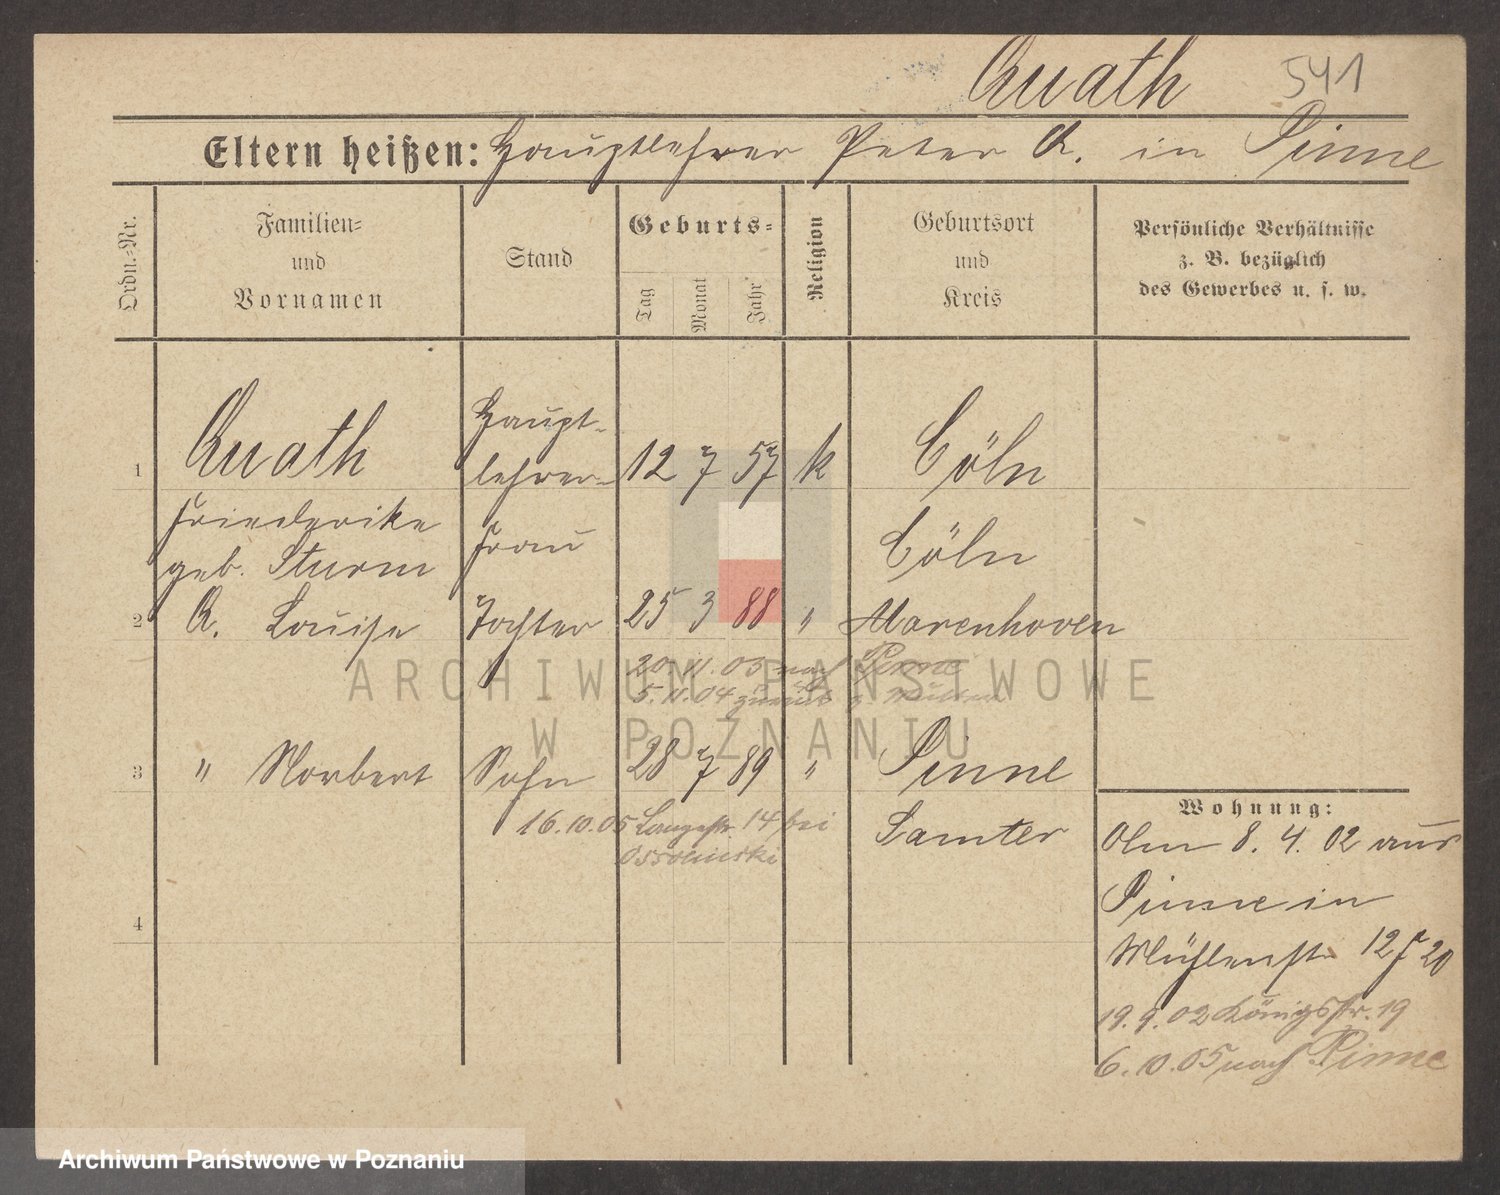 Quath 541
Eltern heißen: Hauptlehrer Peter Q. in Pinne
Ordn.-Nr.
Familien-
und
Vornamen
Stand
Geburts-
Tag
Monat
Jahr
Religion
Geburtsort
und
Kreis
Persönliche Verhältnisse
z. B. bezüglich
des Gewerbes u. s. w.
1 Quath Haupt-
lehrer- 12 7 57 k Cöln
Friederike
geb. Sturm Frau Cöln
2 Q. Louise Tochter 25 3 88 " Marenhoven
20. 11. 03 nach Pinne
5. 11. 04 zurück z. Mutter
3 " Norbert Sohn 28 7 89 " Pinne
Samter
16. 10. 05 Langestr. 14 bei
Ossolinski
4
Wohnung:
Am 8. 4. 02 aus
Pinne in
Mühlenstr. 12 J 20
19. 9. 02 Königsstr. 19
6. 10. 05 nach Pinne
ARCHIWUM PAŃSTWOWE
W POZNANIU
Archiwum Państwowe w Poznaniu